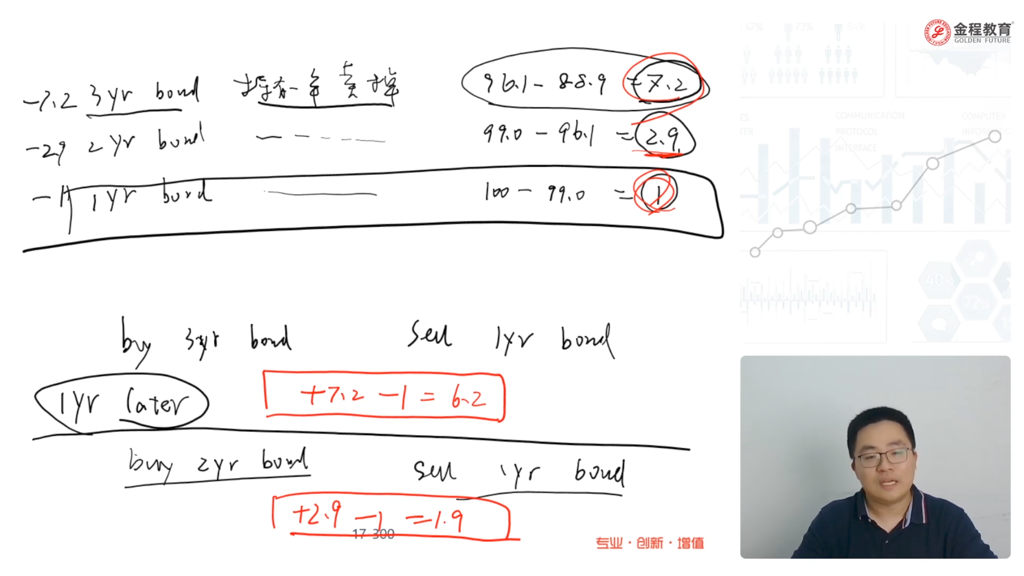 金程教育
GOLDEN FUTURE
-7.2 3yr bond 持有一年卖掉 96.1 - 88.9 = 7.2
-2.9 2yr bond 99.0 - 96.1 = 2.9
-1 1yr bond 100 - 99.0 = 1
buy 3yr bond sell 1yr bond
1yr later +7.2 -1 = 6.2
buy 2yr bond sell 1yr bond
+2.9 -1 = 1.9
17-300
专业·创新·增值
COMMUNICATION
PROTOCOL
INTERFACE